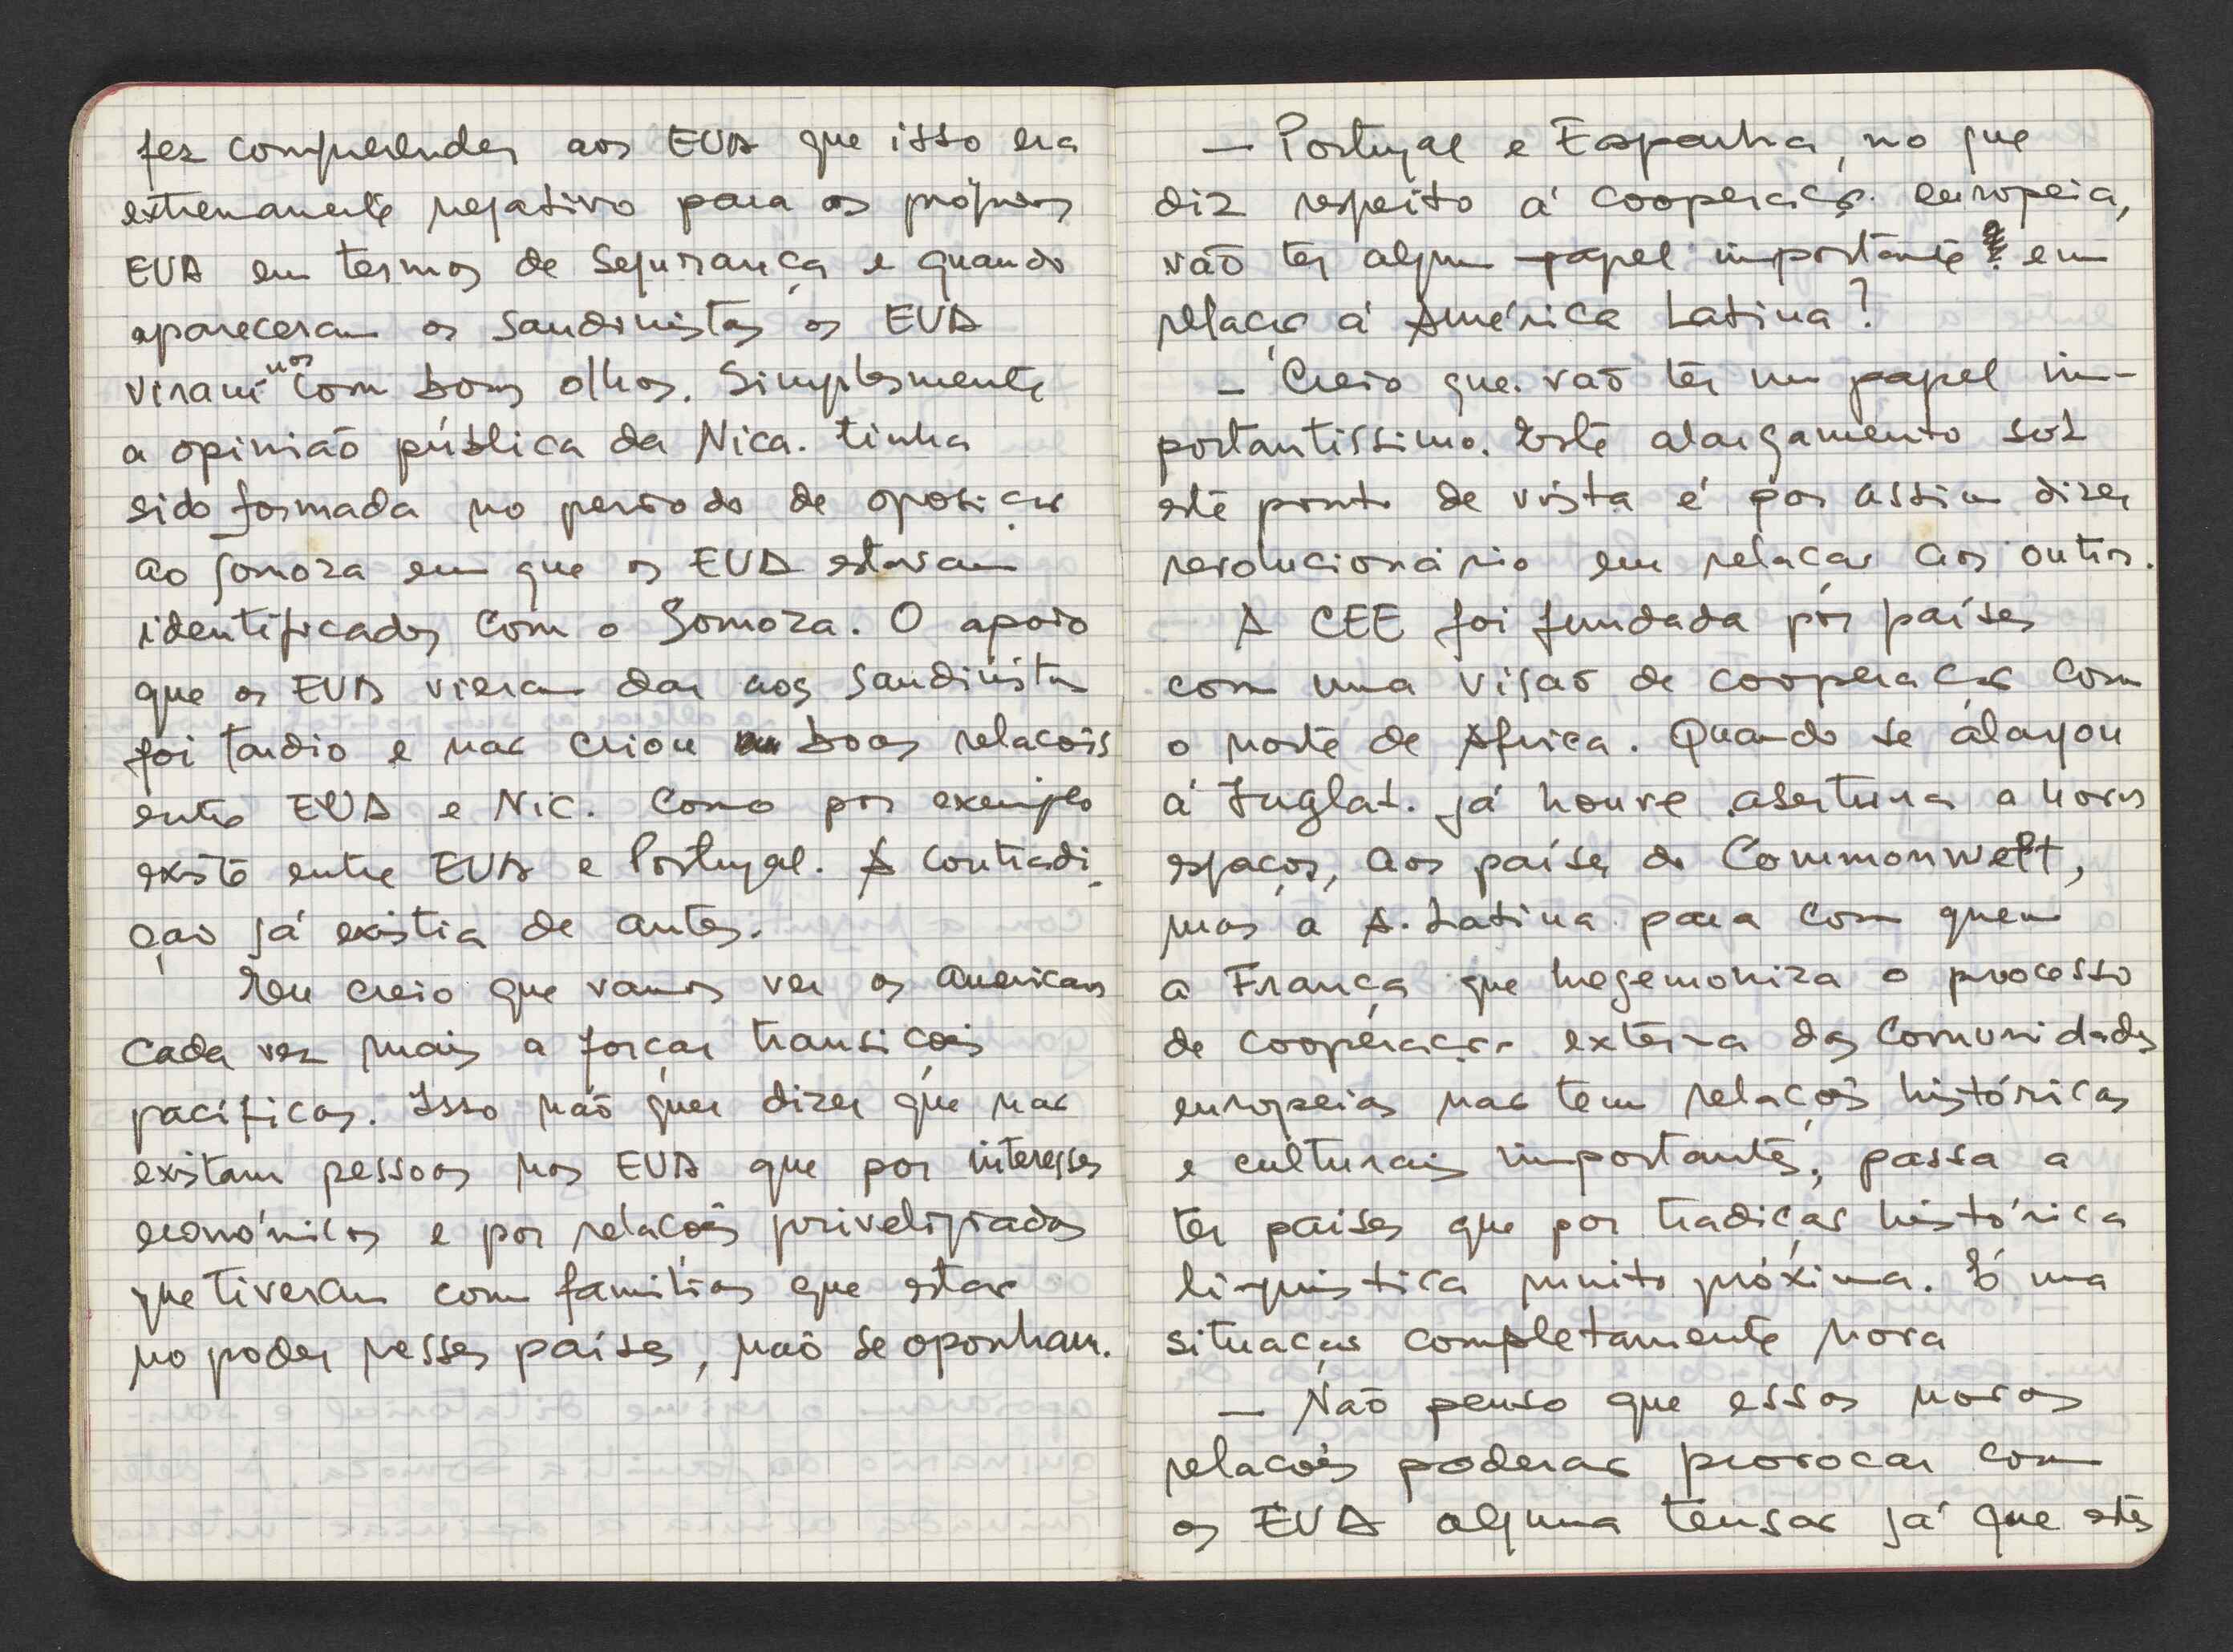 fez compreender aos EUA que isso era
extremamente negativo para os próprios
EUA em termos de segurança e quando
apareceram os sandinistas os EUA
viram-nos com bons olhos. Simplesmente
a opinião pública da Nica. tinha
sido formada no período de oposição
ao Somoza em que os EUA estavam
identificados com o Somoza. O apoio
que os EUA vieram dar aos sandinistas
foi tardio e não criou boas relações
entre EUA e Nic. Como por exemplo
existe entre EUA e Portugal. A contradi-
ção já existia de antes.
Eu creio que vamos ver os americanos
cada vez mais a forçar transições
pacíficas. Isso não quer dizer que não
existam pessoas nos EUA que por interesses
económicos e por relações priveligiadas
que tiveram com famílias que estão
no poder nesses países, não se oponham.
— Portugal e Espanha, no que
diz respeito á cooperação europeia,
vão ter algum papel importante em
relação á América Latina?
— Creio que vão ter um papel im-
portantissimo. Este alargamento sob
este ponto de vista é por assim dizer
revolucionário em relação aos outros.
A CEE foi fundada por países
com uma visão de cooperação com
o norte de Africa. Quando se alargou
á Inglat. já houve abertura a novos
espaços, aos países do Commonwelt,
mas a A. Latina para com quem
a França que hegemoniza o processo
de cooperação externa das Comunidades
europeias não tem relações históricas
e culturais importantes, passa a
ter paises que por tradição histórica
linguistica muito próxima. É uma
situação completamente nova
— Não penso que essas novas
relações poderão provocar com
os EUA alguma tensão já que estes